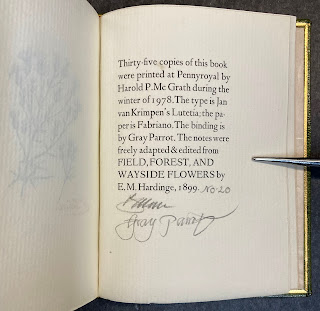 Thirty-five copies of this book
were printed at Pennyroyal by
Harold P. Mc Grath during the
winter of 1978. The type is Jan
van Krimpen's Lutetia; the pa-
per is Fabriano. The binding is
by Gray Parrot. The notes were
freely adapted & edited from
FIELD, FOREST, AND
WAYSIDE FLOWERS by
E. M. Hardinge, 1899. No-20
Gray Parrot